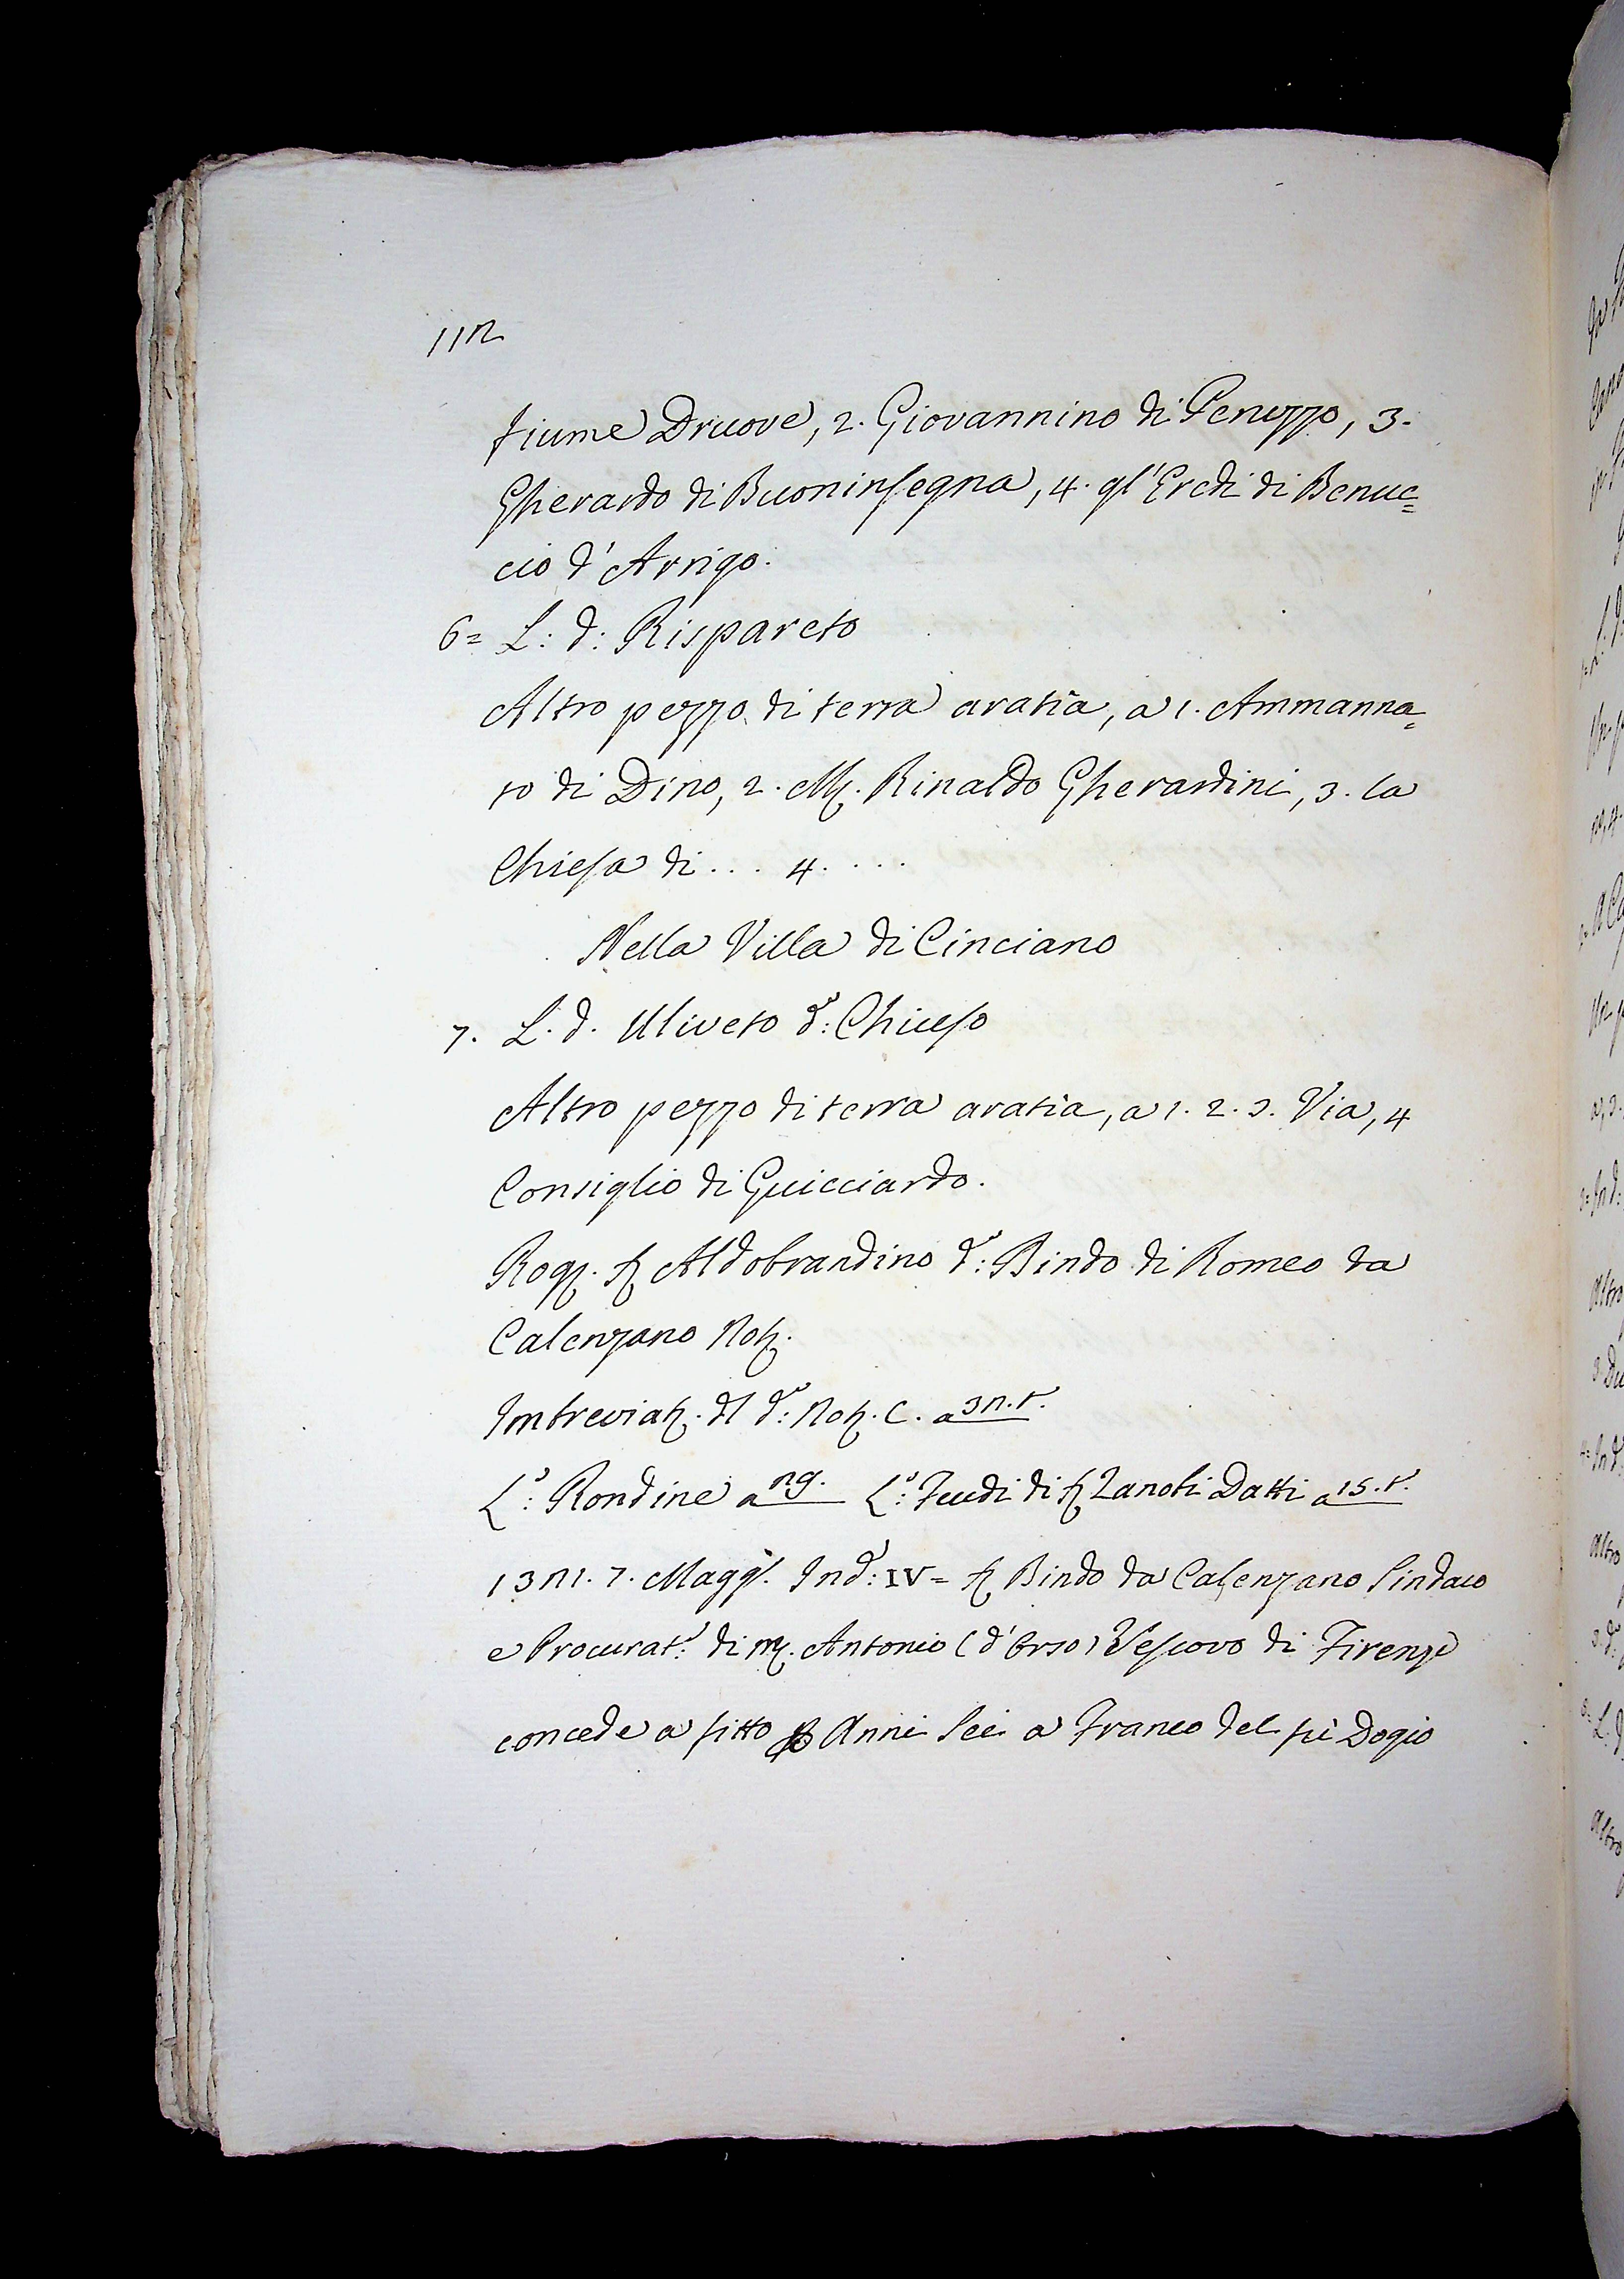 112
fiume Druove, 2. Giovannino di Penuzzo, 3.
Gherardo di Buoninsegna, 4. gl'Eredi di Benuc=
cio d'Arrigo.
6= L: d: Rispareto
Altro pezzo di terra aratia, a 1. Ammanna=
to di Dino, 2. M. Rinaldo Gherardini, 3. la
Chiesa di ... 4. ...
Nella Villa di Cinciano
7. L. d. Uliveto d.º: Chiuso
Altro pezzo di terra aratia, a 1. 2. 3. Via, 4
Consiglio di Guicciardo.
Rog. S. Aldobrandino d.º: Bindo di Romeo da
Calenzano Not.
Imbreviat. dl d.º: Not. C. a 32. t.
L.º: Rondine a 29. L.º: Feudi di S. Zanobi Datti a 15. t.
1321. 7. Magg. Ind: IV= S. Bindo da Calenzano Sindaco
e Procurat.e di M. Antonio (d'Orso) Vescovo di Firenze
concede a fitto p Anni Sei a Franco del fù Dogio